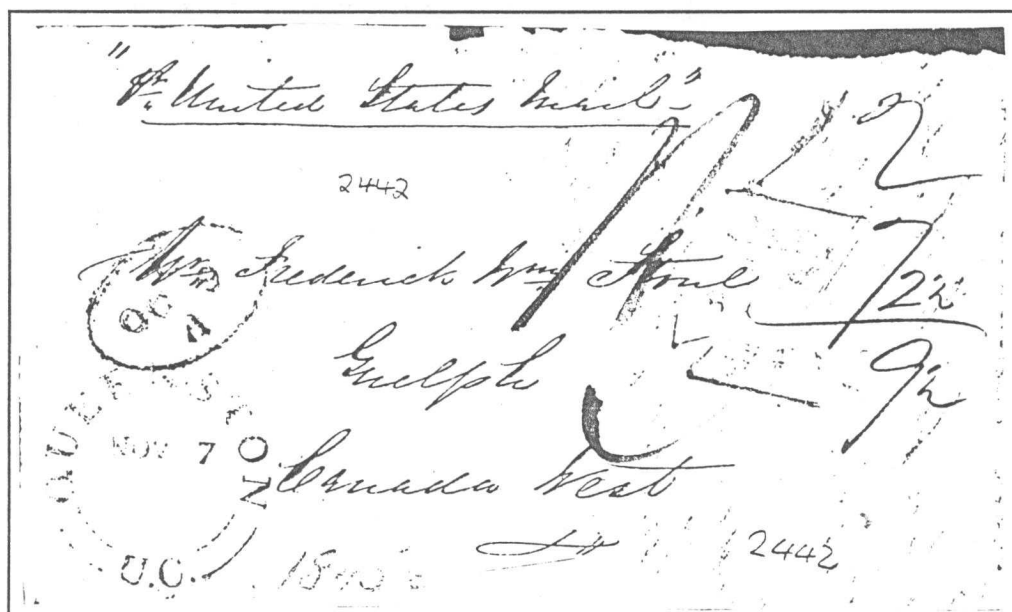 "Pr. United States Mail"
2
2442
Mr Frederick Wm Stone
7 2½
9½
Guelph
Canada West
QUEENSTON
NOV 7
U.C.
2442